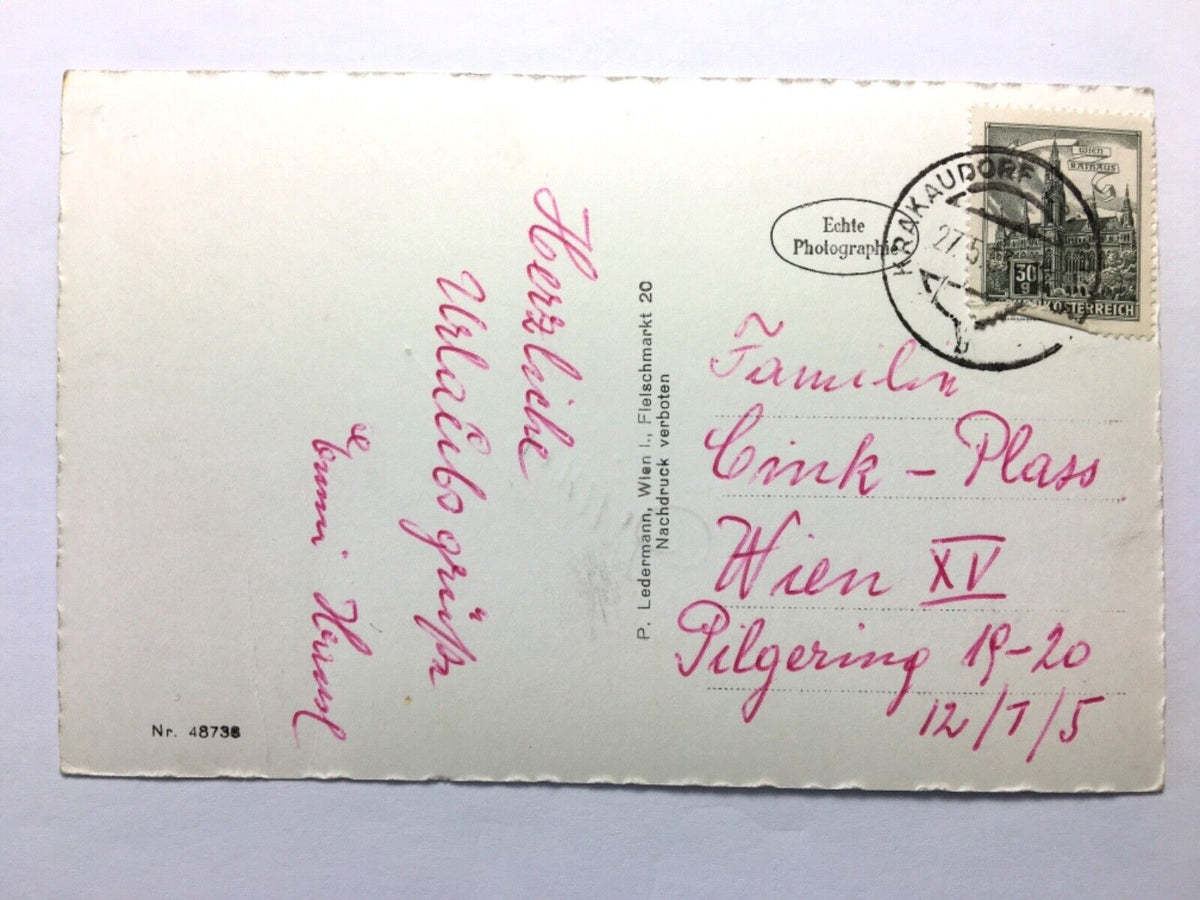 Herzliche
Urlaubsgrüße
P. Ledermann, Wien I., Fleischmarkt 20
Nachdruck verboten
Nr. 48738
Echte
Photographie
KRAKAUDORF
27.5.
b
WIEN
RATHAUS
30
g
ÖSTERREICH
Familie
Cink - Plass
Wien XV
Pilgering 19-20
12/1/5